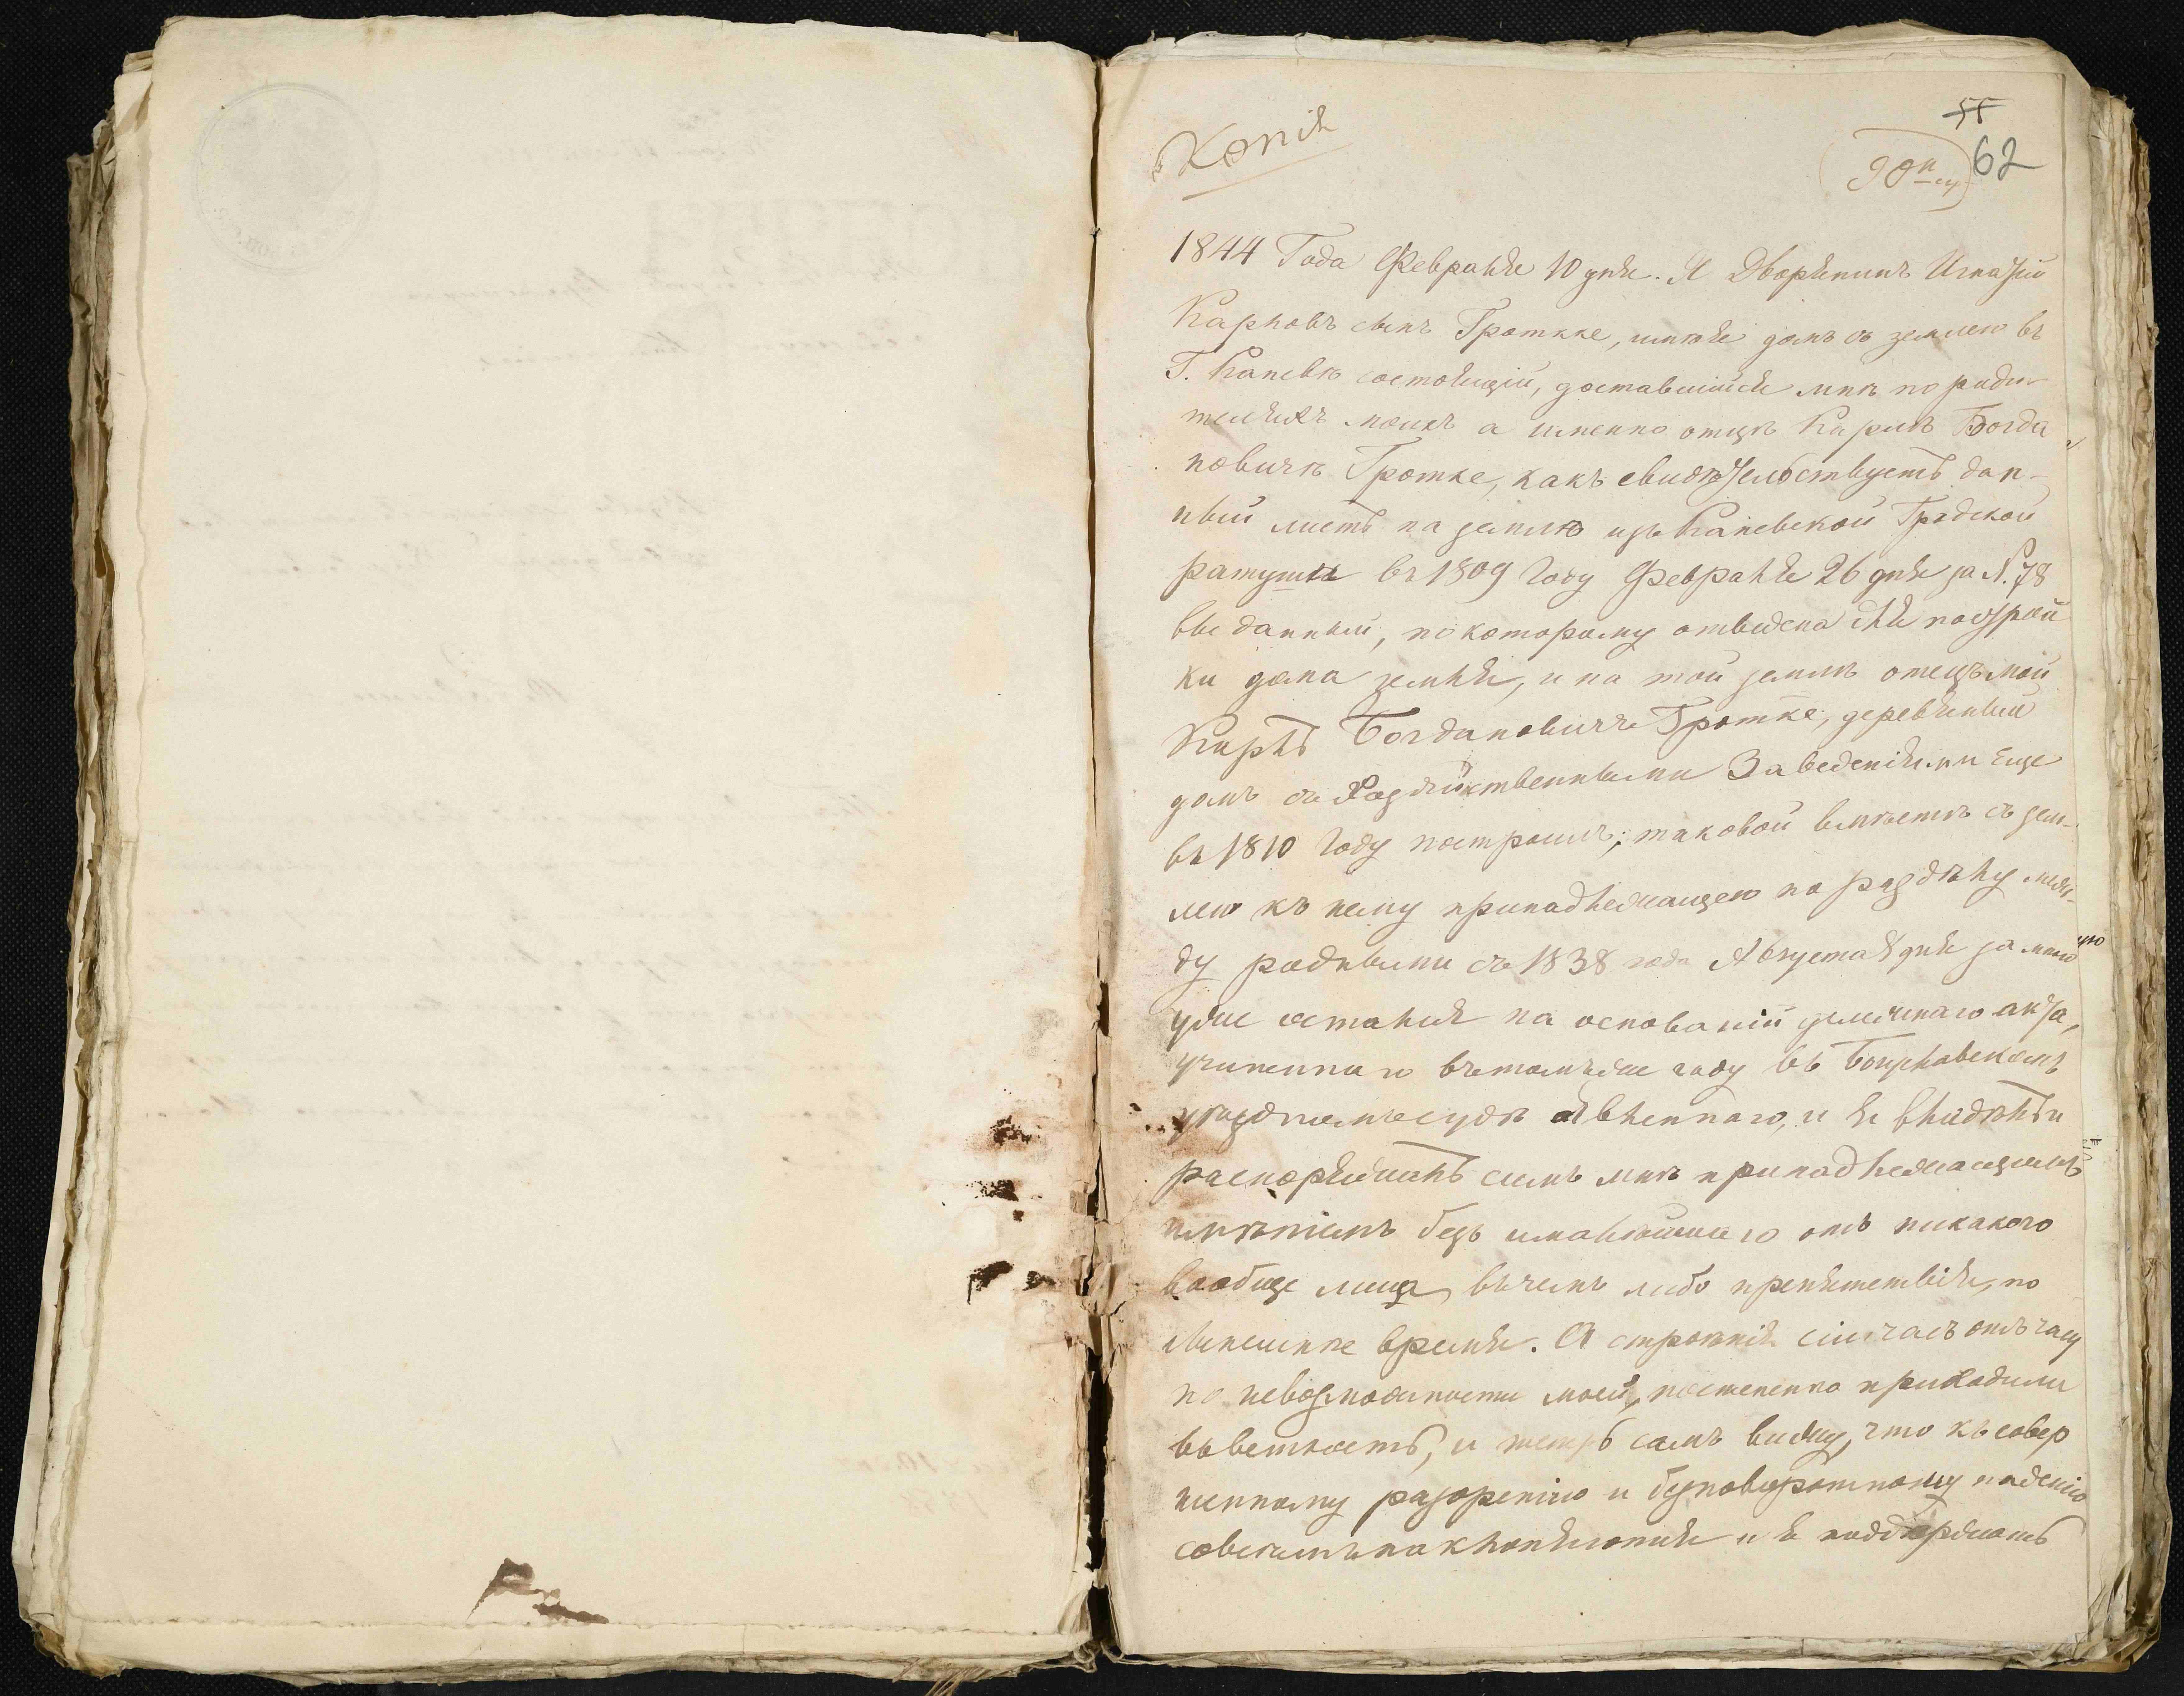 Копія
55
62
1844 Года Февраля 10 дня. Я Дворянинъ Игнатій
Карловъ сынъ Гроткке, имѣя домъ съ землею въ
Г. Каневѣ состоящій, доставшійся мнѣ по роди-
теляхъ моихъ а именно отцѣ Карлѣ Богда
новичѣ Гротке, какъ свидѣтельствуетъ дан-
ный листъ на землю изъ Каневской Градской
ратуши въ 1809 Году Февраля 26 дня за №. 78
выданный, по которому отведена для построй
ки дома земля, и на той землѣ отецъ мой
Карлъ Богдановичъ Гротке, деревянный
домъ съ Хозяйственными Заведеніями еще
въ 1810 Году построилъ; таковой вмѣстѣ съ зем-
лею къ нему принадлежащею по раздѣлу меж-
ду родными съ 1838 года Августа 8 дня за мною
уже остался на основаній дѣлчаго акта,
учиненнаго въ томъ же году въ Богуславскомъ
уѣздномъ судѣ явленнаго, и я владѣлъ и
распоряжалъ симъ мнѣ принадлежащимъ
имѣніемъ безъималѣйшаго отъ никакого
вообще лица, въ чемъ либо препятствія, по
нынешнѣ время. А строенія сіи часъ отъ часу
по невозможности моей, постепенно приходили
въ ветхость, и теперь самъ вижу, что къ совер
шенному разоренію и безповоротному паденію
совсемъ наклоняются и я поддержать